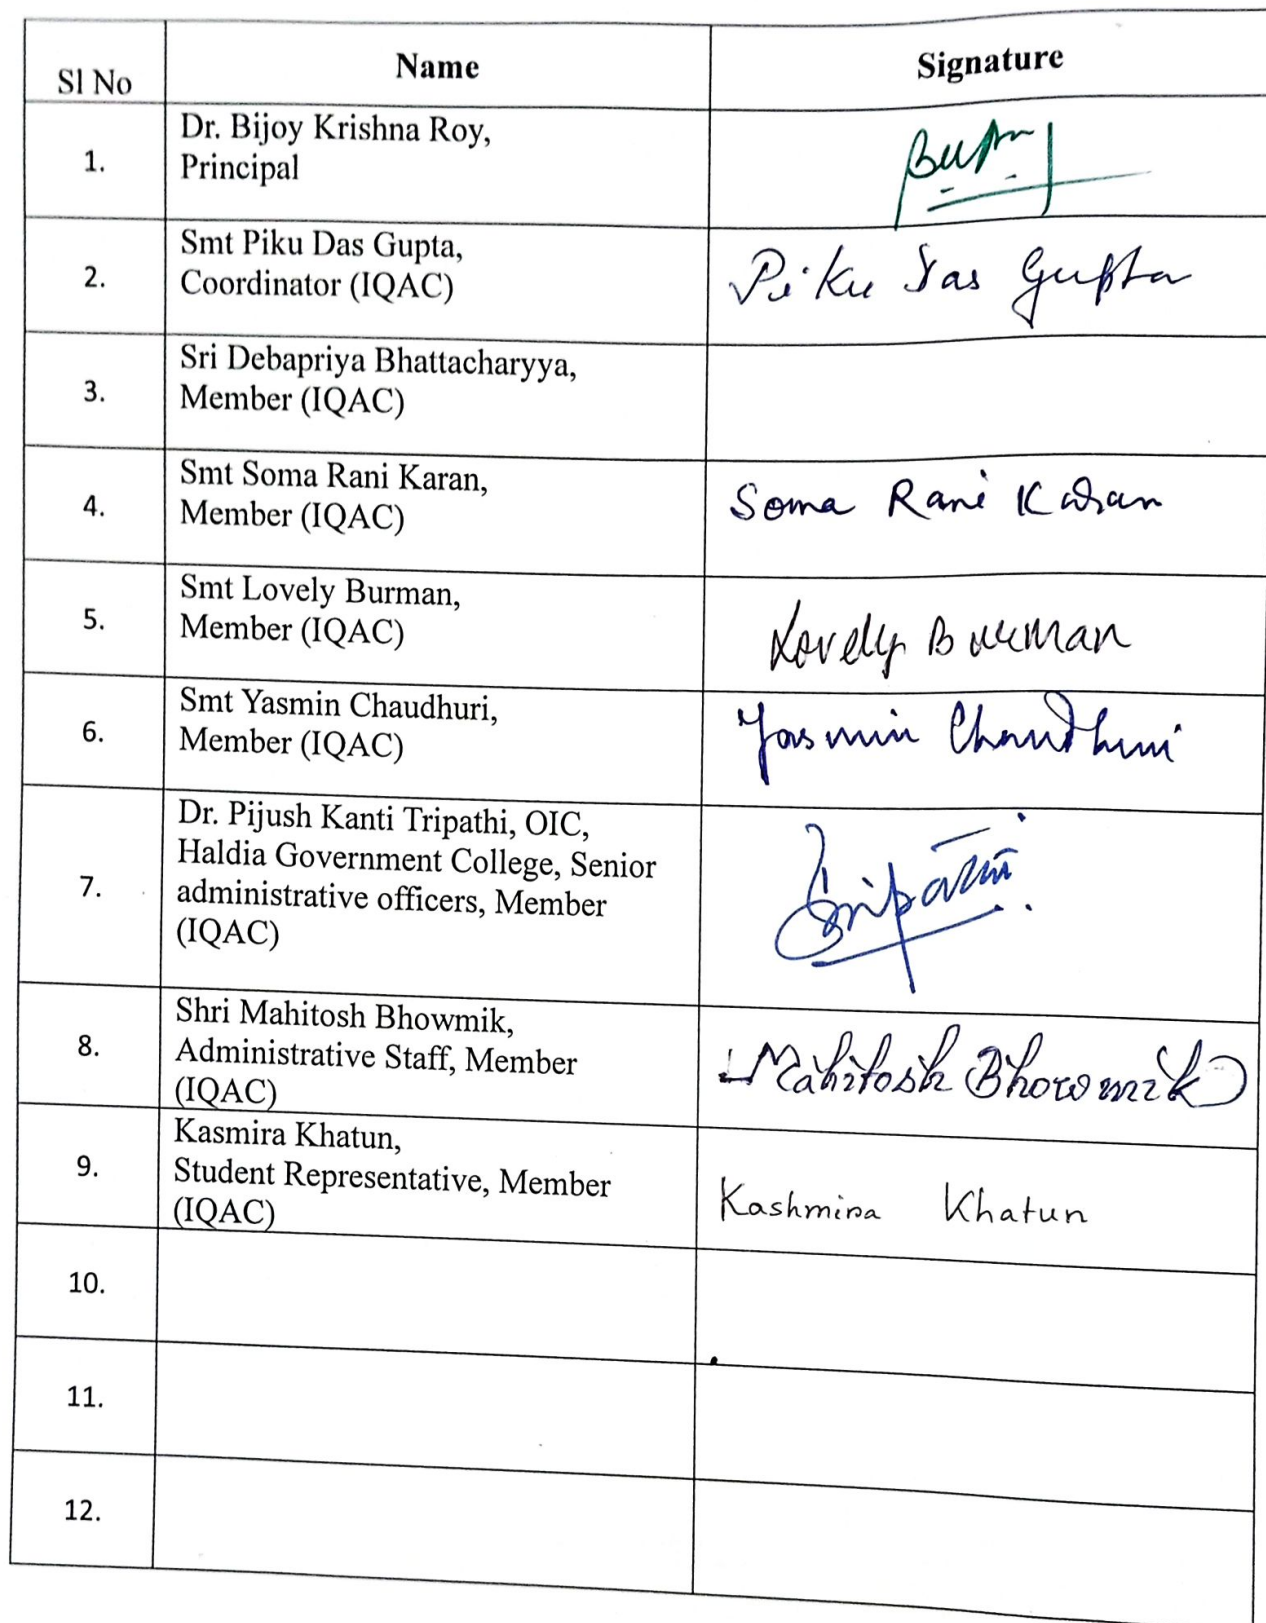 Sl No
Name
Signature
1.
Dr. Bijoy Krishna Roy,
Principal
2.
Smt Piku Das Gupta,
Coordinator (IQAC)
Piku Das Gupta
3.
Sri Debapriya Bhattacharyya,
Member (IQAC)
4.
Smt Soma Rani Karan,
Member (IQAC)
Soma Rani Karan
5.
Smt Lovely Burman,
Member (IQAC)
Lovely Burman
6.
Smt Yasmin Chaudhuri,
Member (IQAC)
Yasmin Chaudhuri
7.
Dr. Pijush Kanti Tripathi, OIC,
Haldia Government College, Senior
administrative officers, Member
(IQAC)
Tripathi
8.
Shri Mahitosh Bhowmik,
Administrative Staff, Member
(IQAC)
Mahitosh Bhowmik
9.
Kasmira Khatun,
Student Representative, Member
(IQAC)
Kashmira Khatun
10.
11.
12.